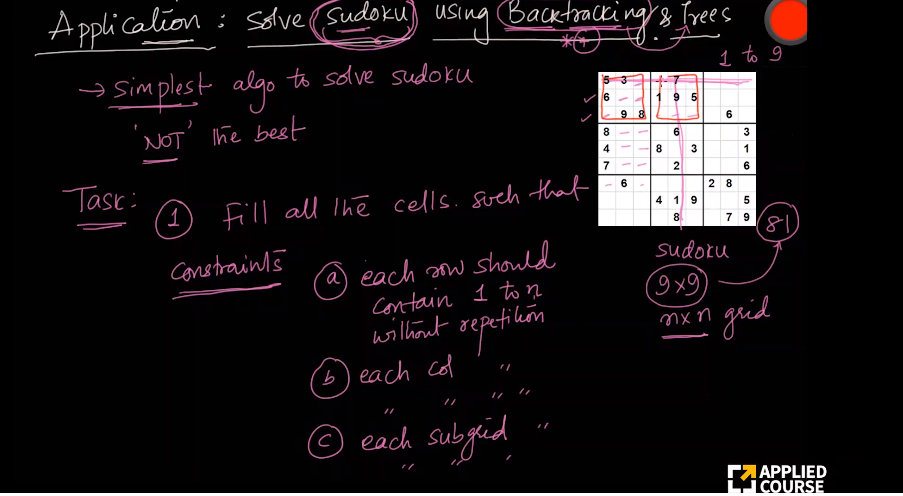 Application : Solve Sudoku using Backtracking & Trees
1 to 9
→ simplest algo to solve sudoku
'NOT' the best
5 3 7
6 1 9 5
9 8 6
8 6 3
4 8 3 1
7 2 6
6 2 8
4 1 9 5
8 7 9
Task: ① Fill all the cells. such that
constraints
ⓐ each row should
contain 1 to n
without repetition
ⓑ each col "
" " " "
ⓒ each subgrid "
" " "
sudoku
9×9
81
n×n grid
APPLIED
COURSE